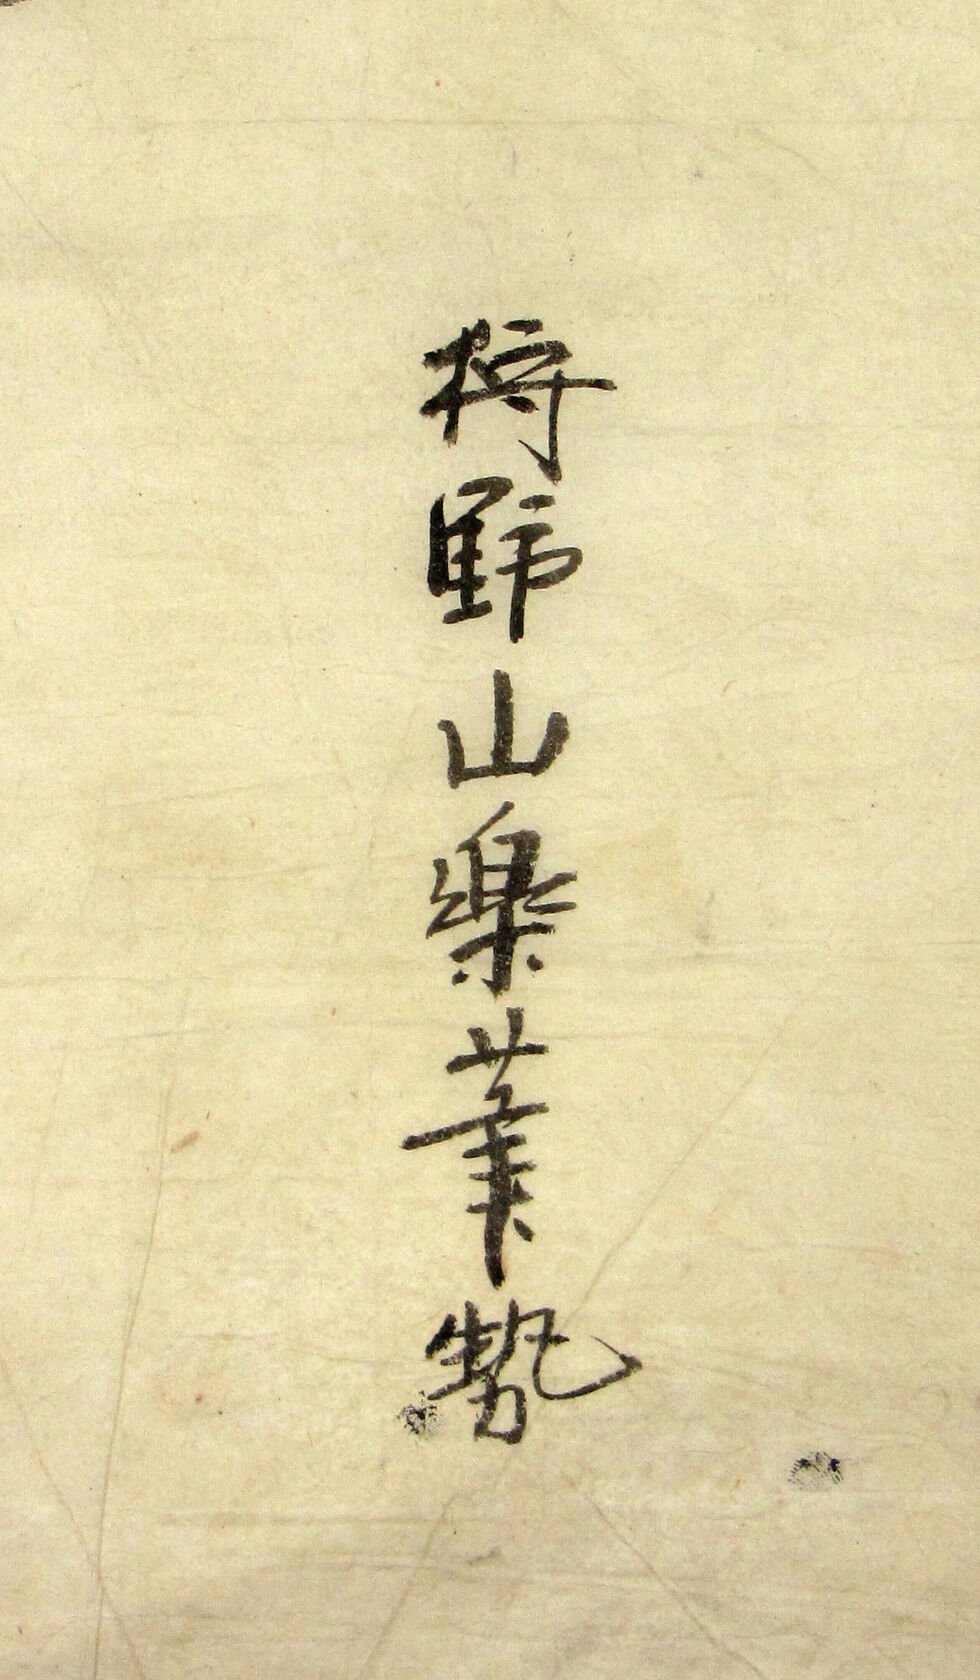 狩野山楽筆勢